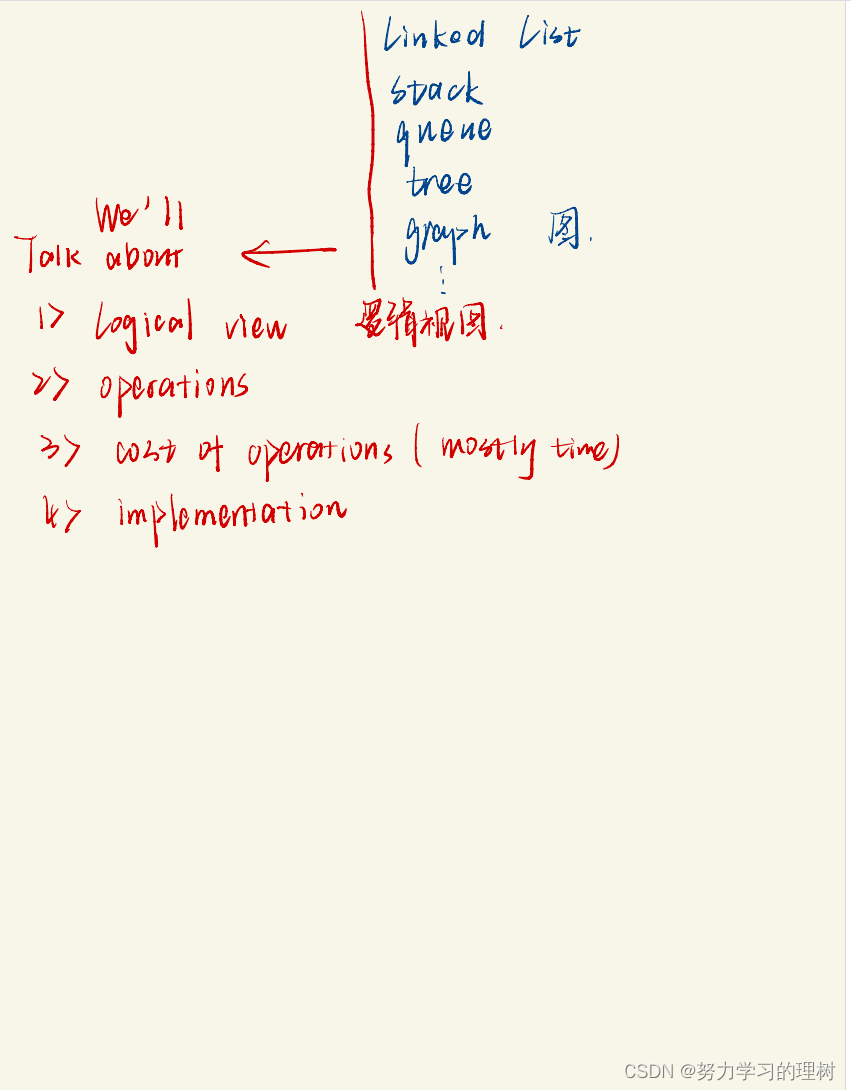 Linked List
stack
queue
tree
graph 图.
We'll
Talk about
1> Logical view 逻辑视图.
2> operations
3> cost of operations ( mostly time)
4> implementation
CSDN @努力学习的理树